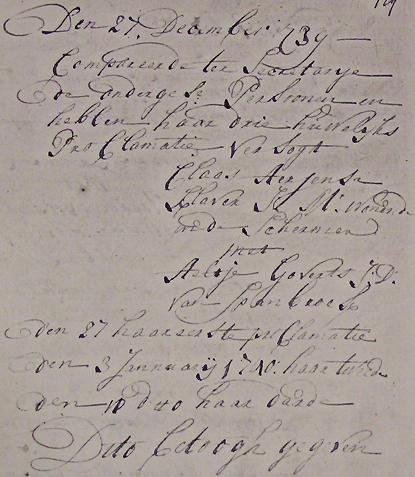 19
Den 27. December 1739 —
Compareerde ter Secretarije
de onderge Sz: Persoonen en
hebben haar drie huwelijks
Pro Clamatie Versogt
Claas Aerjensz
Klaver J: M: Wonende
inde Schermer
met
Aeltje Goverts J: D:
van Spanbroek
den 27 haar eerste pro Clamatie
den 3 Januuarij 1740. haar twede
den 10 dito haar darde
Dito betoogh gegeven